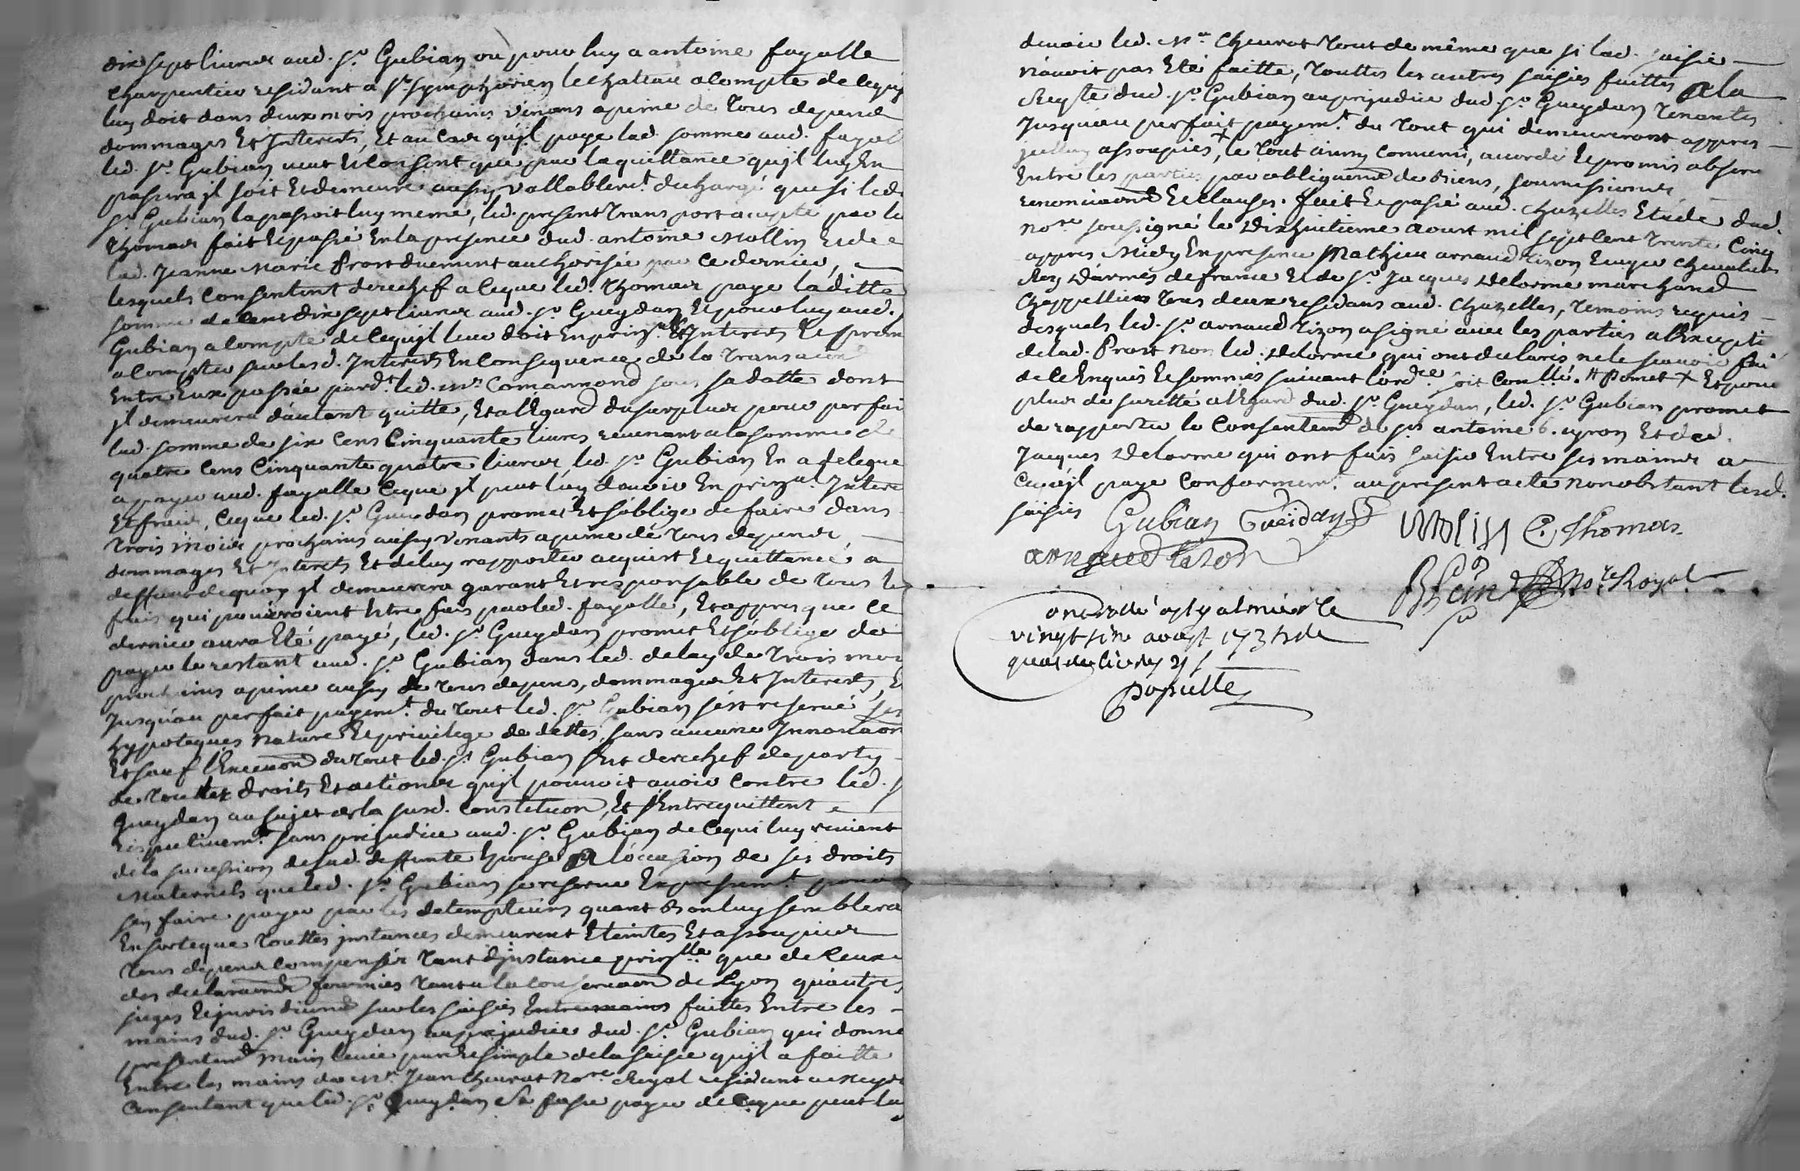 dix sept livres aud. Sr. Gubian ou pour luy a antoine fayolle
charpentier residant a St. symphorien le chateau a compte de ce qu'il
luy doit dans deux mois prochains venans a peine de tous depens
dommages et Interets, Et au cas qu'jl paye lad. somme aud. fayol
led. Sr. Gubian veut et Consent que par la quittance qu'jl luy En
passera jl soit Et demeure aussy vallablemt. dechargé que si led.
Sr. Gubian la passoit luy meme, led. present transport accepté par le
Thomas fait Et passé En la presence dud. antoine Mollin Et de
lad. Jeanne Marie Prost duement authorisée par ce dernier,
lesquels Consentent derechef a ce que led. Thomas paye laditte
somme de Cent dix sept livres aud. Sr. Gueydan Et pour luy aud.
Gubian a Compte de ce qu'jl leur doit En prinal. Et Interets Et
a Compter sur lesd. Interets En Consequence de la transaction
Entre Eux passée pardt. led. Mr. Camarmond sous sa datte dont
jl demeurera d'autant quitte, Et a l'Egard du surplus pour parfai
lad. somme de six Cens Cinquante livres revenant a la somme de
quatre Cens Cinquante quatre livres led. Sr. Gubian En a delegué
a payer aud. fayolle Ce que jl peut luy devoir En prinal. Intere
Et fraix, Ce que led. Sr. Gueydan promet Et s'oblige de faire dans
trois mois prochains aussy venants a peine de tous depens,
dommages Et Interets Et de luy rapporter acquit Et quittance a
deffaut de quoy jl demeurera garant Et responsable de tous les
frais qui pouroient Etre fais par led. fayolle, Et appres que ce
dernier aura Eté payé, led. Sr. Gueydan promet Et s'oblige de
payer le restant aud. Sr. Gubian dans led. delay de trois moy
prochains a peine aussy de tous depens, dommages Et Interets, Et
Jusqu'au parfait payemt. du tout led. Sr. Gubian s'est reservé ses
hypoteques nature Et privilege de dettes, sans aucune Innovaon
Et sauf l'Execuon du tout led. Sr. Gubian s'est derechef departy
de touttes droits Et actions qu'jl pouvoit avoir contre led. S
Gueydan au sujet de la susd. Constituon, Et s'Entrequittent
respectivemt. sans prejudice aud. Sr. Gubian de Ce qui luy revient
de la succession de sad. deffunte Epouse a l'occasion de ses droits
Maternels que led. Sr. Gubian se reserve Expressemt. pour
s'en faire payer par les detempteurs quant Bon luy semblera
En sorte que touttes jnstances demeurent Eteintes Et assoupies
tous depens compensés tant d'jnstance prinlle. que de Ceux
des declarations fournies tant a la Conservaon de Lyon qu'autres
juges Et jurisdictions sur les saisies Entremains faittes Entre les
mains dud. Sr. Gueydan au prejudice dud. Sr. Gubian qui donne
presentemt. main levée pure Et simple de la saisie qu'jl a faitte
Entre les mains de Mr. Jean Chevrot Nore. Royal residant a
Consentant que led. Sr. Gueydan se fasse payer de Ce que peut luy
devoir led. Mr. Chevrot tout de même que si lad. saisie
n'avoit pas Eté faitte, touttes les autres saisies faittes a la
Reqte. dud. Sr. Gubian au prejudice dud. Sr. Gueydan tenantes
Jusqu'au parfait payemt. du tout qui demeureront appres
assoupies, le tout ainsy Convenu, accordé Et promis observer
Entre les parties par obligaons de Biens, soumissions
renonciaons Et Clauses. fait Et passé aud. Chazelles Etude dud.
nore. soussigné le Dixhuitieme aoust mil sept Cent trente Cinq
appres Midy En presence Mathieu arnaud tizon Ecuyer chevalier
Roy d'armes de france Et de Sr. Jacques Delorme marchand
Chappellier tous deux residans aud. Chazelles, temoins requis
desquels led. Sr. arnaud tizon a signé avec les parties a l'exceptio
de lad. Prost Non led. Delorme qui ont declarés ne le sçavoir fai
de Ce Enquis Et sommés suivant l'ordce. soit Conllé. # Et pour
plus de suretté a l'Egard dud. Sr. Gueydan, led. Sr. Gubian promet
de rapporter le Consentemt. de Srs. antoine Et de
Jacques Delorme qui ont fait saisir Entre ses mains a
Ce qu'jl paye Conformemt. au present acte nonobstant lesd.
saisies Gubian Gueidan Molin C. Thomas
arnaud tizon
Nore. Royal
Controllé a St galmier le
vingt six aoust 1735 de

Populle